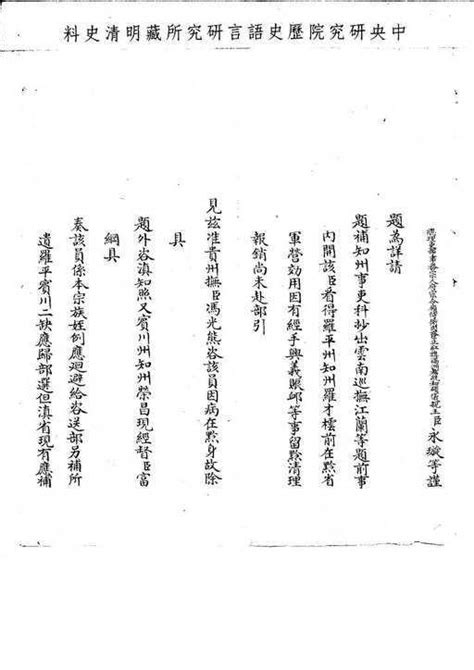 中央研究院歷史語言研究所藏明清史料
王臣永璇等謹
題為詳請
題補知州事吏科抄出雲南巡撫江蘭等題前事
內開該臣看得羅平州知州羅才樏前在黔省
軍營効用因有經手興義賬卹等事留黔清理
報銷尚未赴部引
見茲准貴州撫臣馮光熊咨該員因病在黔身故除
具
題外咨滇知照又賓川州知州榮昌現經督臣富
綱具
奏該員係本宗族姪例應迴避給咨送部另補所
遺羅平賓川二缺應歸部選但滇省現有應補